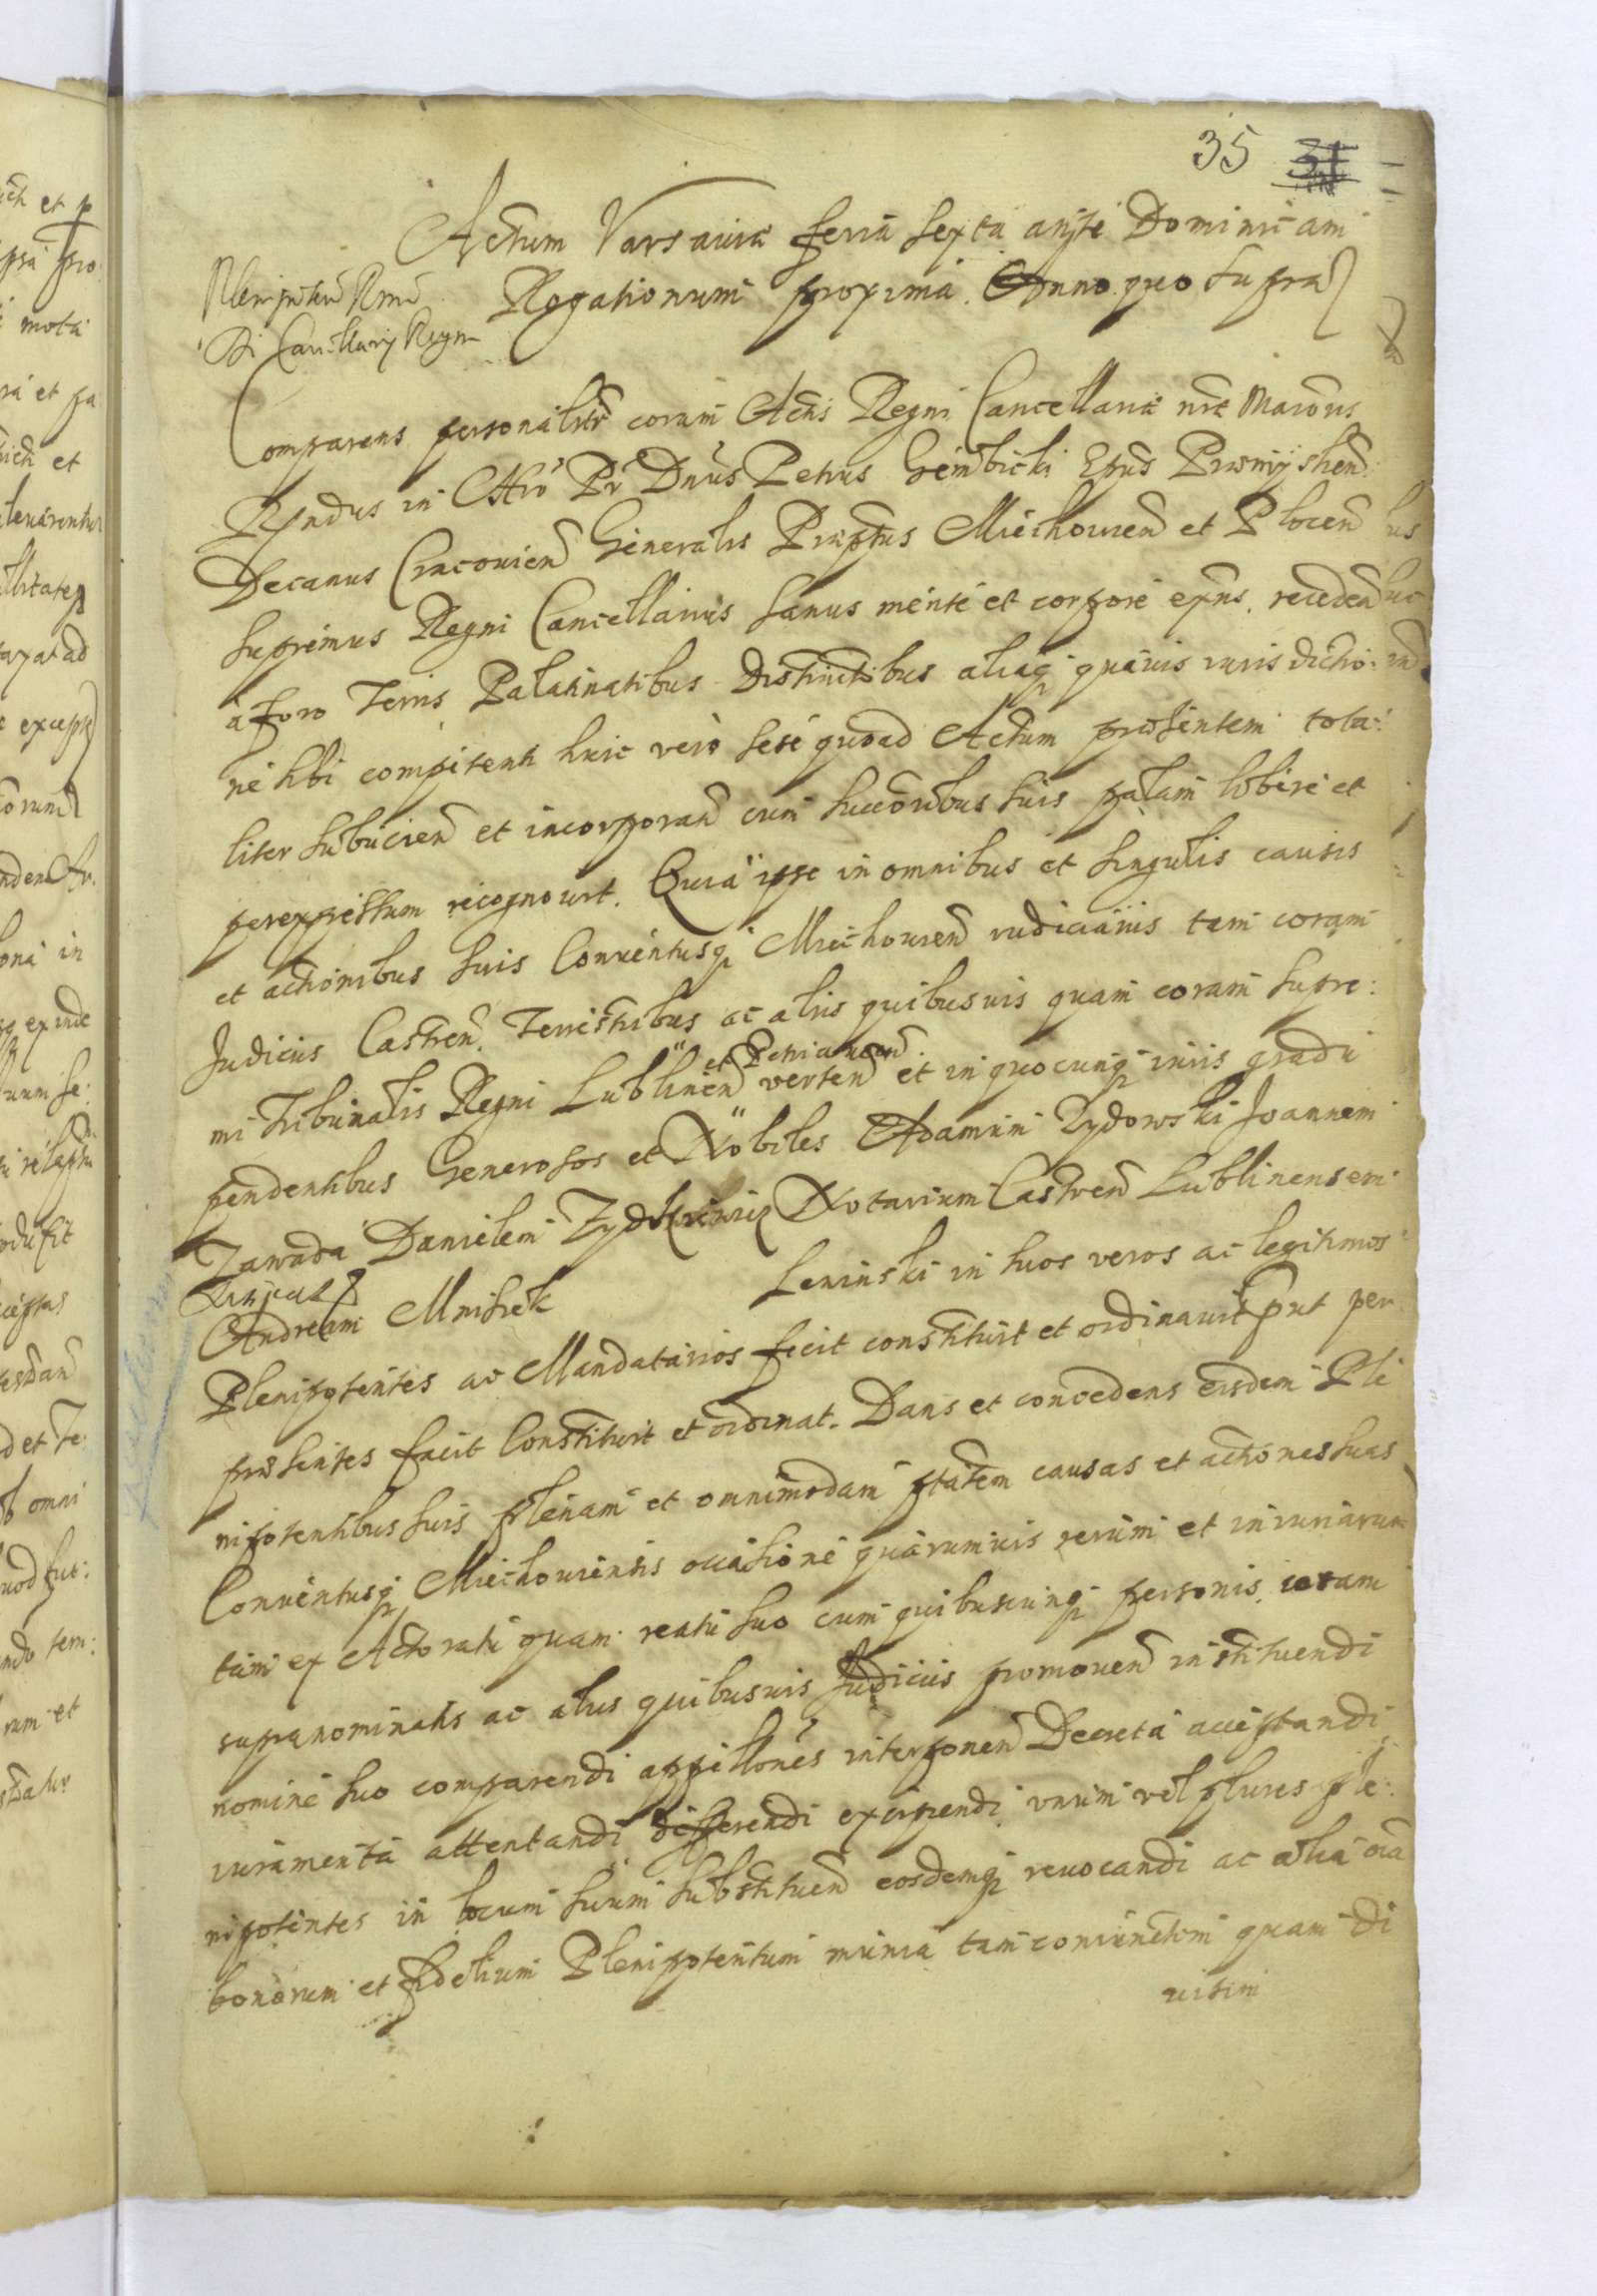 35 31
Actum Varsauiæ feria sexta ante Dominicam
Rogationum proxima. Anno quo supra
Plenipoten Rmi
Dni Cancellarij Regni
Comparens personaliter coram Actis Regni Cancellariæ nræ Maioris
Rndus in Chro Pr Dnus Petrus Gembicki Epus Præmyslien
Decanus Cracouien Generalis Præptus Miechouien et Plocen
Supremus Regni Cancellarius sanus mente et corpore exns. receden
à foro Terris Palatinatibus Districtibus aliaq quauis iurisdictio:
ne sibi competenti huic verò sese quoad Actum præsentem tota:
liter subiicien et incorporan cum succoribus suis palam libere et
per expressum recognouit. Quia ipse in omnibus et singulis causis
et actionibus suis Conuentusq Miechouien iudiciariis tam coram
Judiciis Castren. Terrestribus ac aliis quibusuis quam coram supre:
mi Tribunalis Regni Lublinen et Petricouien verten et in quocunq iuris gradu
pendentibus Generosos et Nobiles Adamum Zydowski Joannem
Zawada Danielem Notarium Castren Lublinensem
Andream Mnishek Leninski in suos veros ac legitimos
Plenipotentes ac Mandatarios fecit constituit et ordinauit put per
præsentes facit Constituit et ordinat. Dans et concedens eisdem Ple
nipotentibus suis plenam et omnimodam ptatem causas et actiones suas
Conuentusq Miechouiensis occasione quarumuis rerum et iniuriarum
tam ex Actoratu quam reatu suo cum quibuscunq personis. coram
supranominatis ac aliis quibusuis Judiciis promouen instituendi
nomine suo comparendi appellones interponen Decreta acceptandi
iuramenta attentandi differendi excipiendi unum vel plures ple:
nipotentes in locum suum substituen eosdemq reuocandi ac alia oia
bonorum et fidelium Plenipotentum munia tam coniunctim quam di
uisim